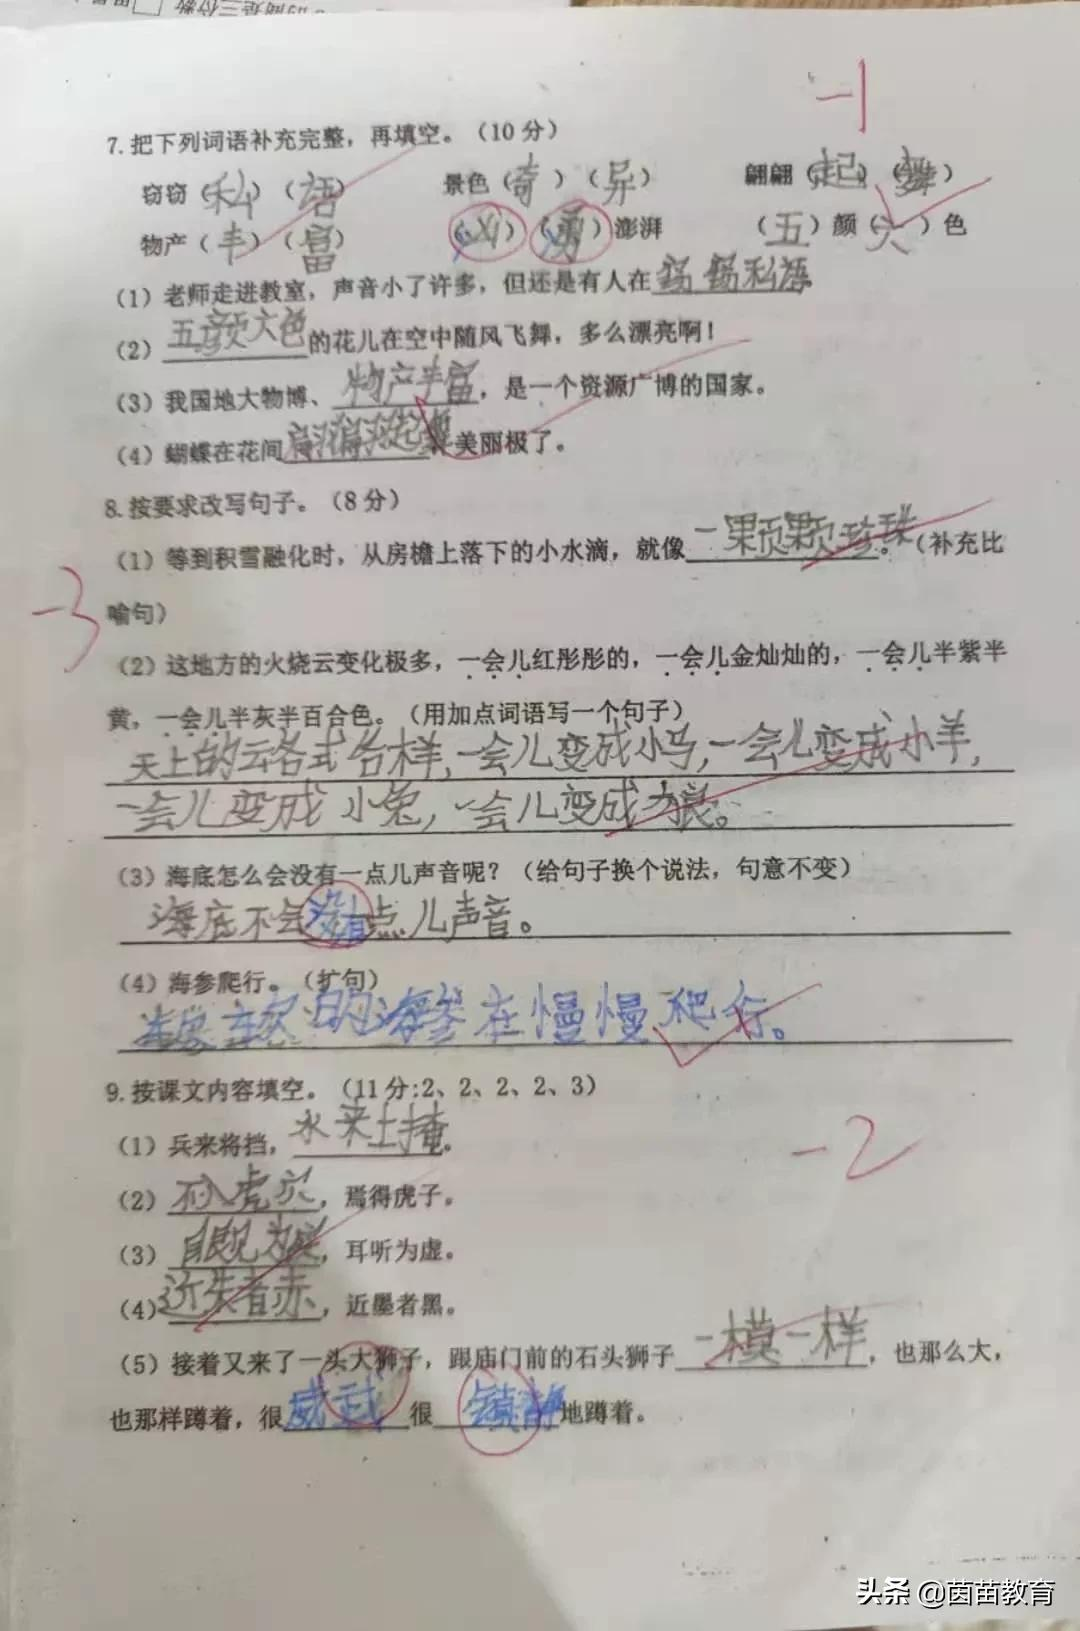 -1
7.把下列词语补充完整，再填空。（10分）
窃窃（私）（语） 景色（奇）（异） 翩翩（起）（舞）
物产（丰）（富） （汹）（涌）澎湃 （五）颜（六）色
（1）老师走进教室，声音小了许多，但还是有人在窃窃私语
（2）五颜六色的花儿在空中随风飞舞，多么漂亮啊！
（3）我国地大物博、物产丰富，是一个资源广博的国家。
（4）蝴蝶在花间翩翩起舞，美丽极了。
8.按要求改写句子。（8分）
（1）等到积雪融化时，从房檐上落下的小水滴，就像一颗颗珍珠。（补充比
-3
喻句）
（2）这地方的火烧云变化极多，一会儿红彤彤的，一会儿金灿灿的，一会儿半紫半
黄，一会儿半灰半百合色。（用加点词语写一个句子）
天上的云各式各样，一会儿变成小马，一会儿变成小羊，
一会儿变成小兔，一会儿变成大狼。
（3）海底怎么会没有一点儿声音呢？（给句子换个说法，句意不变）
海底不会没有点儿声音。
（4）海参爬行。（扩句）
的海参在慢慢爬行。
9.按课文内容填空。（11分:2、2、2、2、3）
（1）兵来将挡，水来土掩。
-2
（2）不入虎穴，焉得虎子。
（3）眼见为实，耳听为虚。
（4）近朱者赤，近墨者黑。
（5）接着又来了一头大狮子，跟庙门前的石头狮子一模一样，也那么大，
也那样蹲着，很威武，很镇静地蹲着。
头条 @茵苗教育